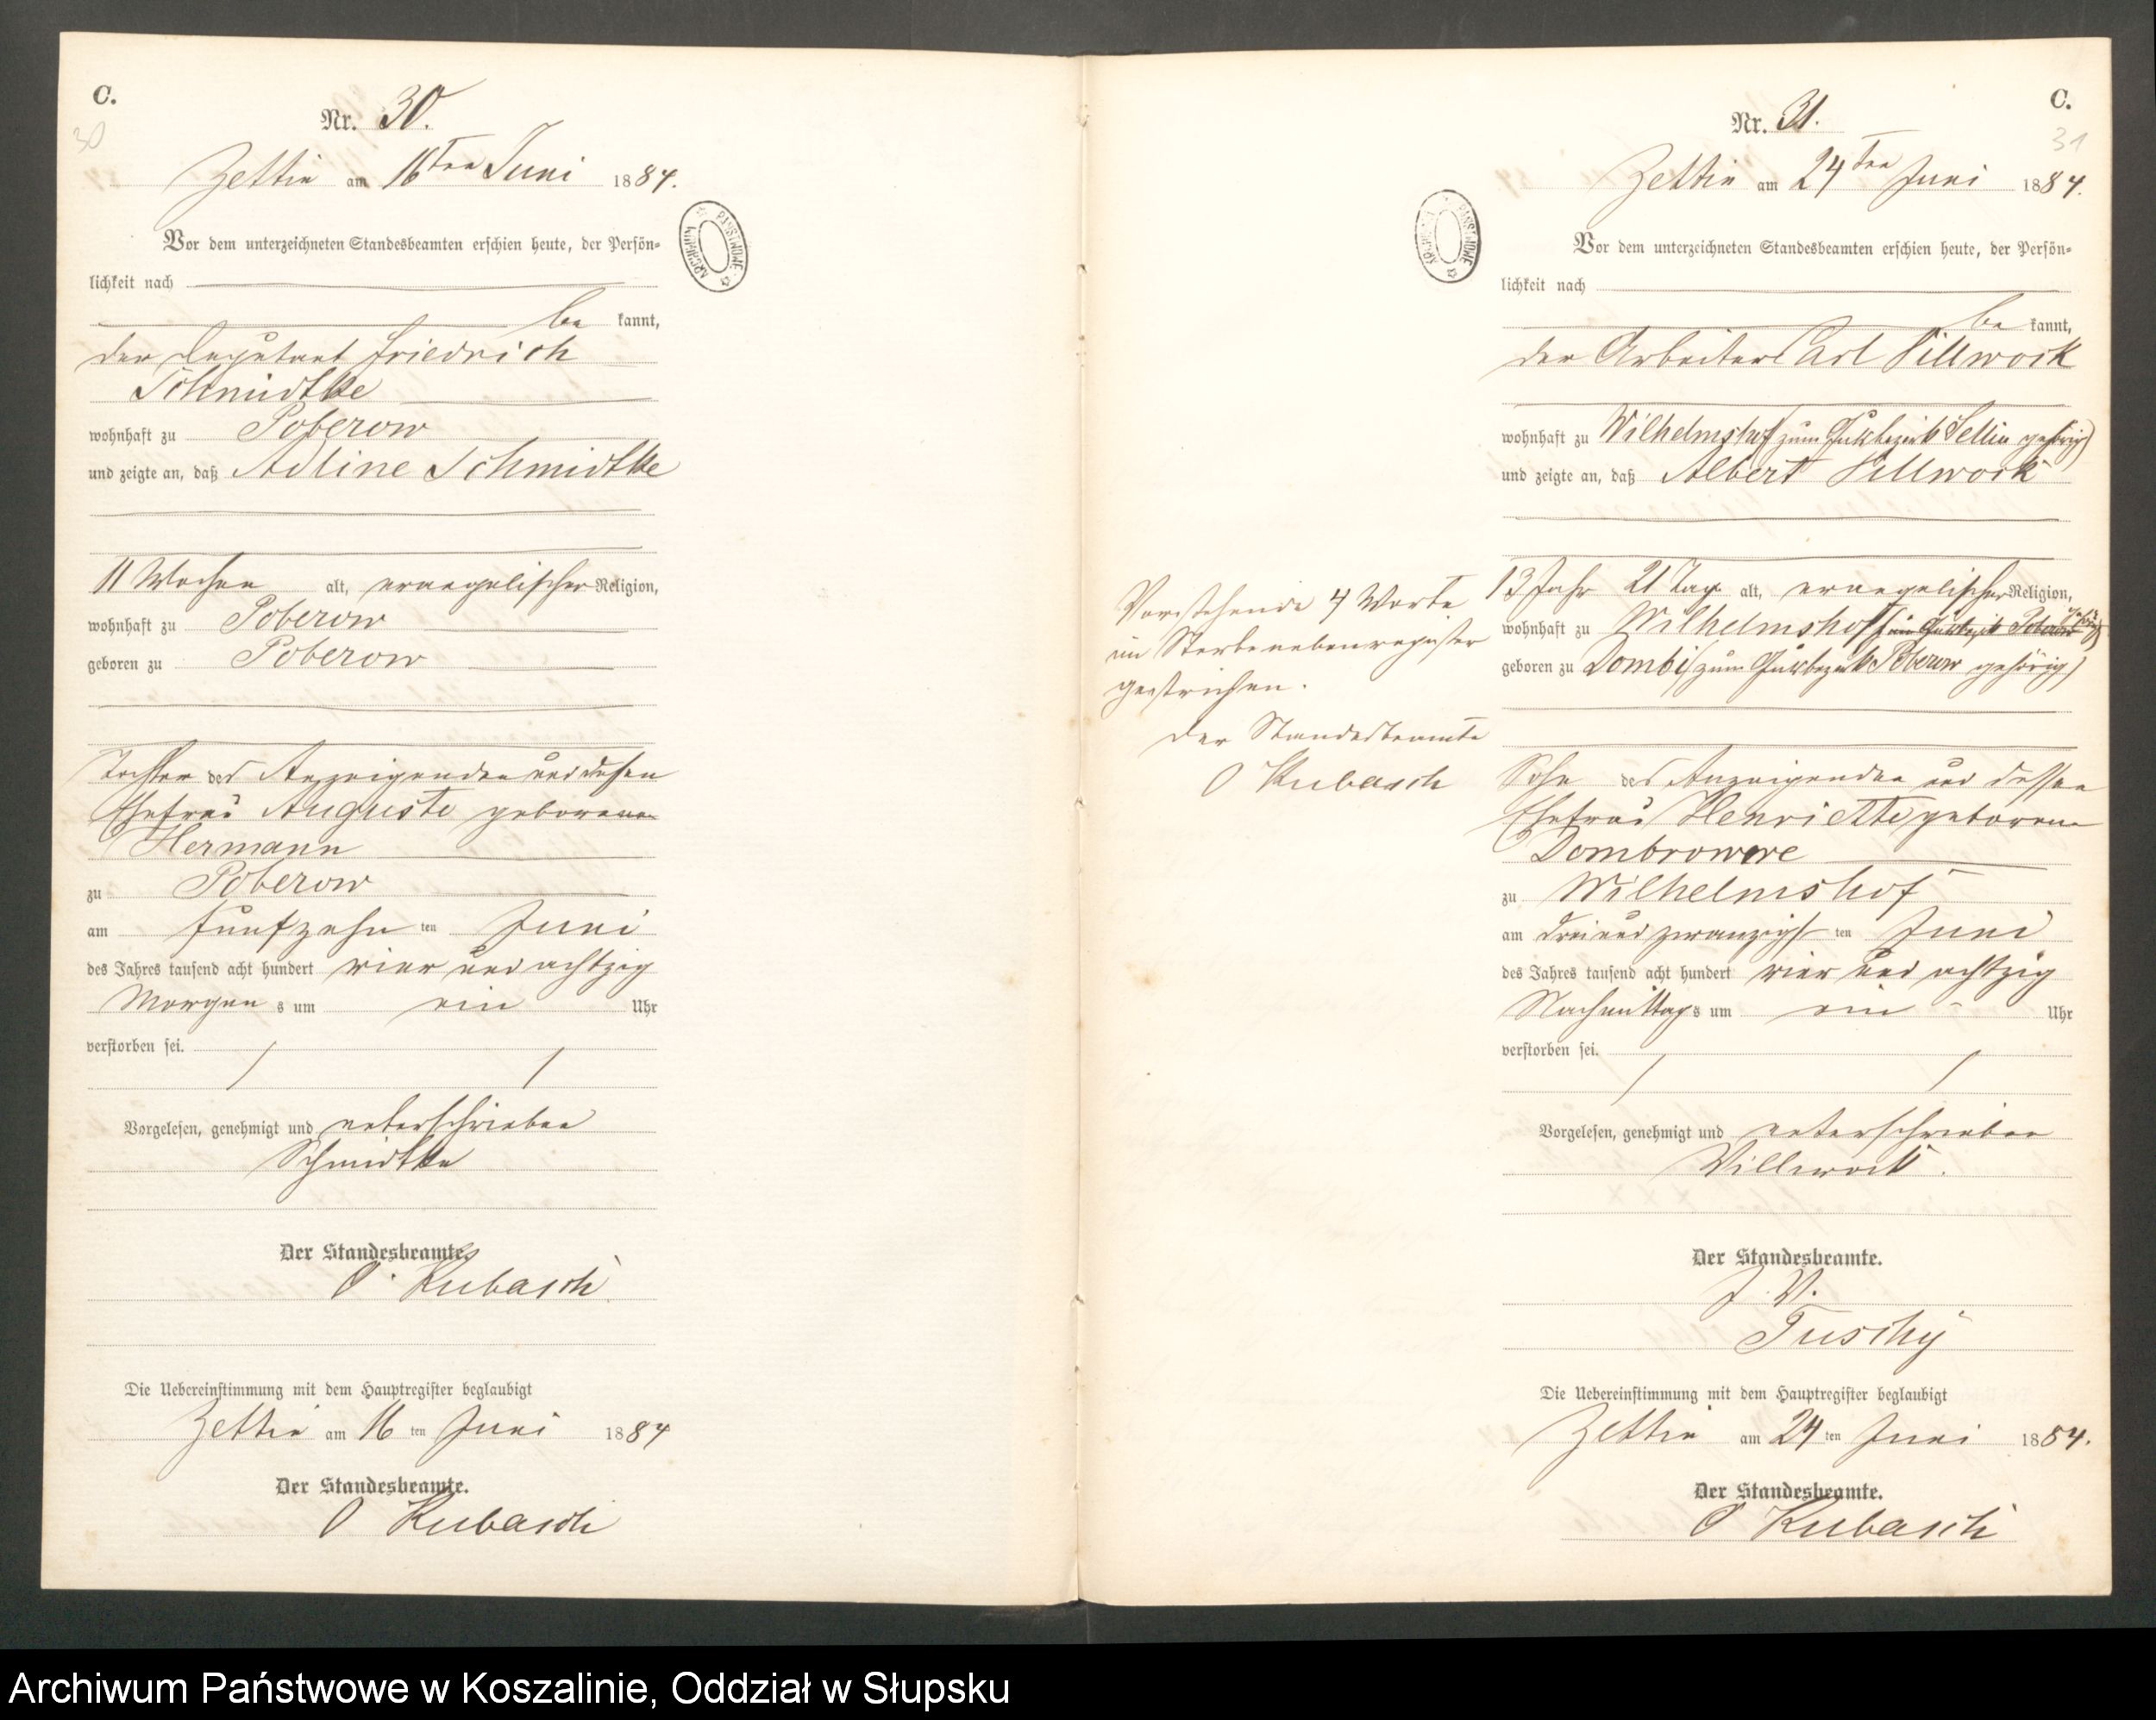 C.
30
Nr. 30.
Zettin am 16ten Juni 1884.
Vor dem unterzeichneten Standesbeamten erschien heute, der Persön-
lichkeit nach
be kannt,
der Deputant Friedrich
Schmidtke
wohnhaft zu Poberow
und zeigte an, daß Adline Schmidtke
11 Wochen alt, evangelischer Religion,
wohnhaft zu Poberow
geboren zu Poberow
Tochter des Anzeigenden und dessen
Ehefrau Auguste geborenen
Hermann
zu Poberow
am fünfzehn ten Juni
des Jahres tausend acht hundert vier und achtzig
Morgen s um ein Uhr
verstorben sei.
Vorgelesen, genehmigt und unterschrieben
Schmidtke
Der Standesbeamte.
O. Kubasch
Die Uebereinstimmung mit dem Hauptregister beglaubigt
Zettin am 16 ten Juni 1884
Der Standesbeamte.
O Kubasch
ARCHIWUM PAŃSTWOWE
C.
31
Nr. 31.
Zettin am 24ten Juni 1884.
Vor dem unterzeichneten Standesbeamten erschien heute, der Persön-
lichkeit nach
be kannt,
der Arbeiter Carl Villwock
wohnhaft zu Wilhelmshof (zum Gutsbezirk Sellin gehörig)
und zeigte an, daß Albert Villwock
13 Jahr 21 Tag alt, evangelischer Religion,
wohnhaft zu Wilhelmshof (im Gutsbezirk Poberow
geboren zu Dombi (zum Gutsbezirk Poberow gehörig)
Sohn des Anzeigenden und dessen
Ehefrau Henriette geborene
Dombrowe
zu Wilhelmshof
am drei und zwanzigs ten Juni
des Jahres tausend acht hundert vier und achtzig
Nachmittag s um ein Uhr
verstorben sei.
Vorgelesen, genehmigt und unterschrieben
Villwock.
Der Standesbeamte.
J. V.
Tuschy
Die Uebereinstimmung mit dem Hauptregister beglaubigt
Zettin am 24 ten Juni 1884.
Der Standesbeamte.
O Kubasch
Vorstehende 4 Worte
im Sterbenebenregister
gestrichen.
Der Standesbeamte
O Kubasch
ARCHIWUM PAŃSTWOWE
Archiwum Państwowe w Koszalinie, Oddział w Słupsku